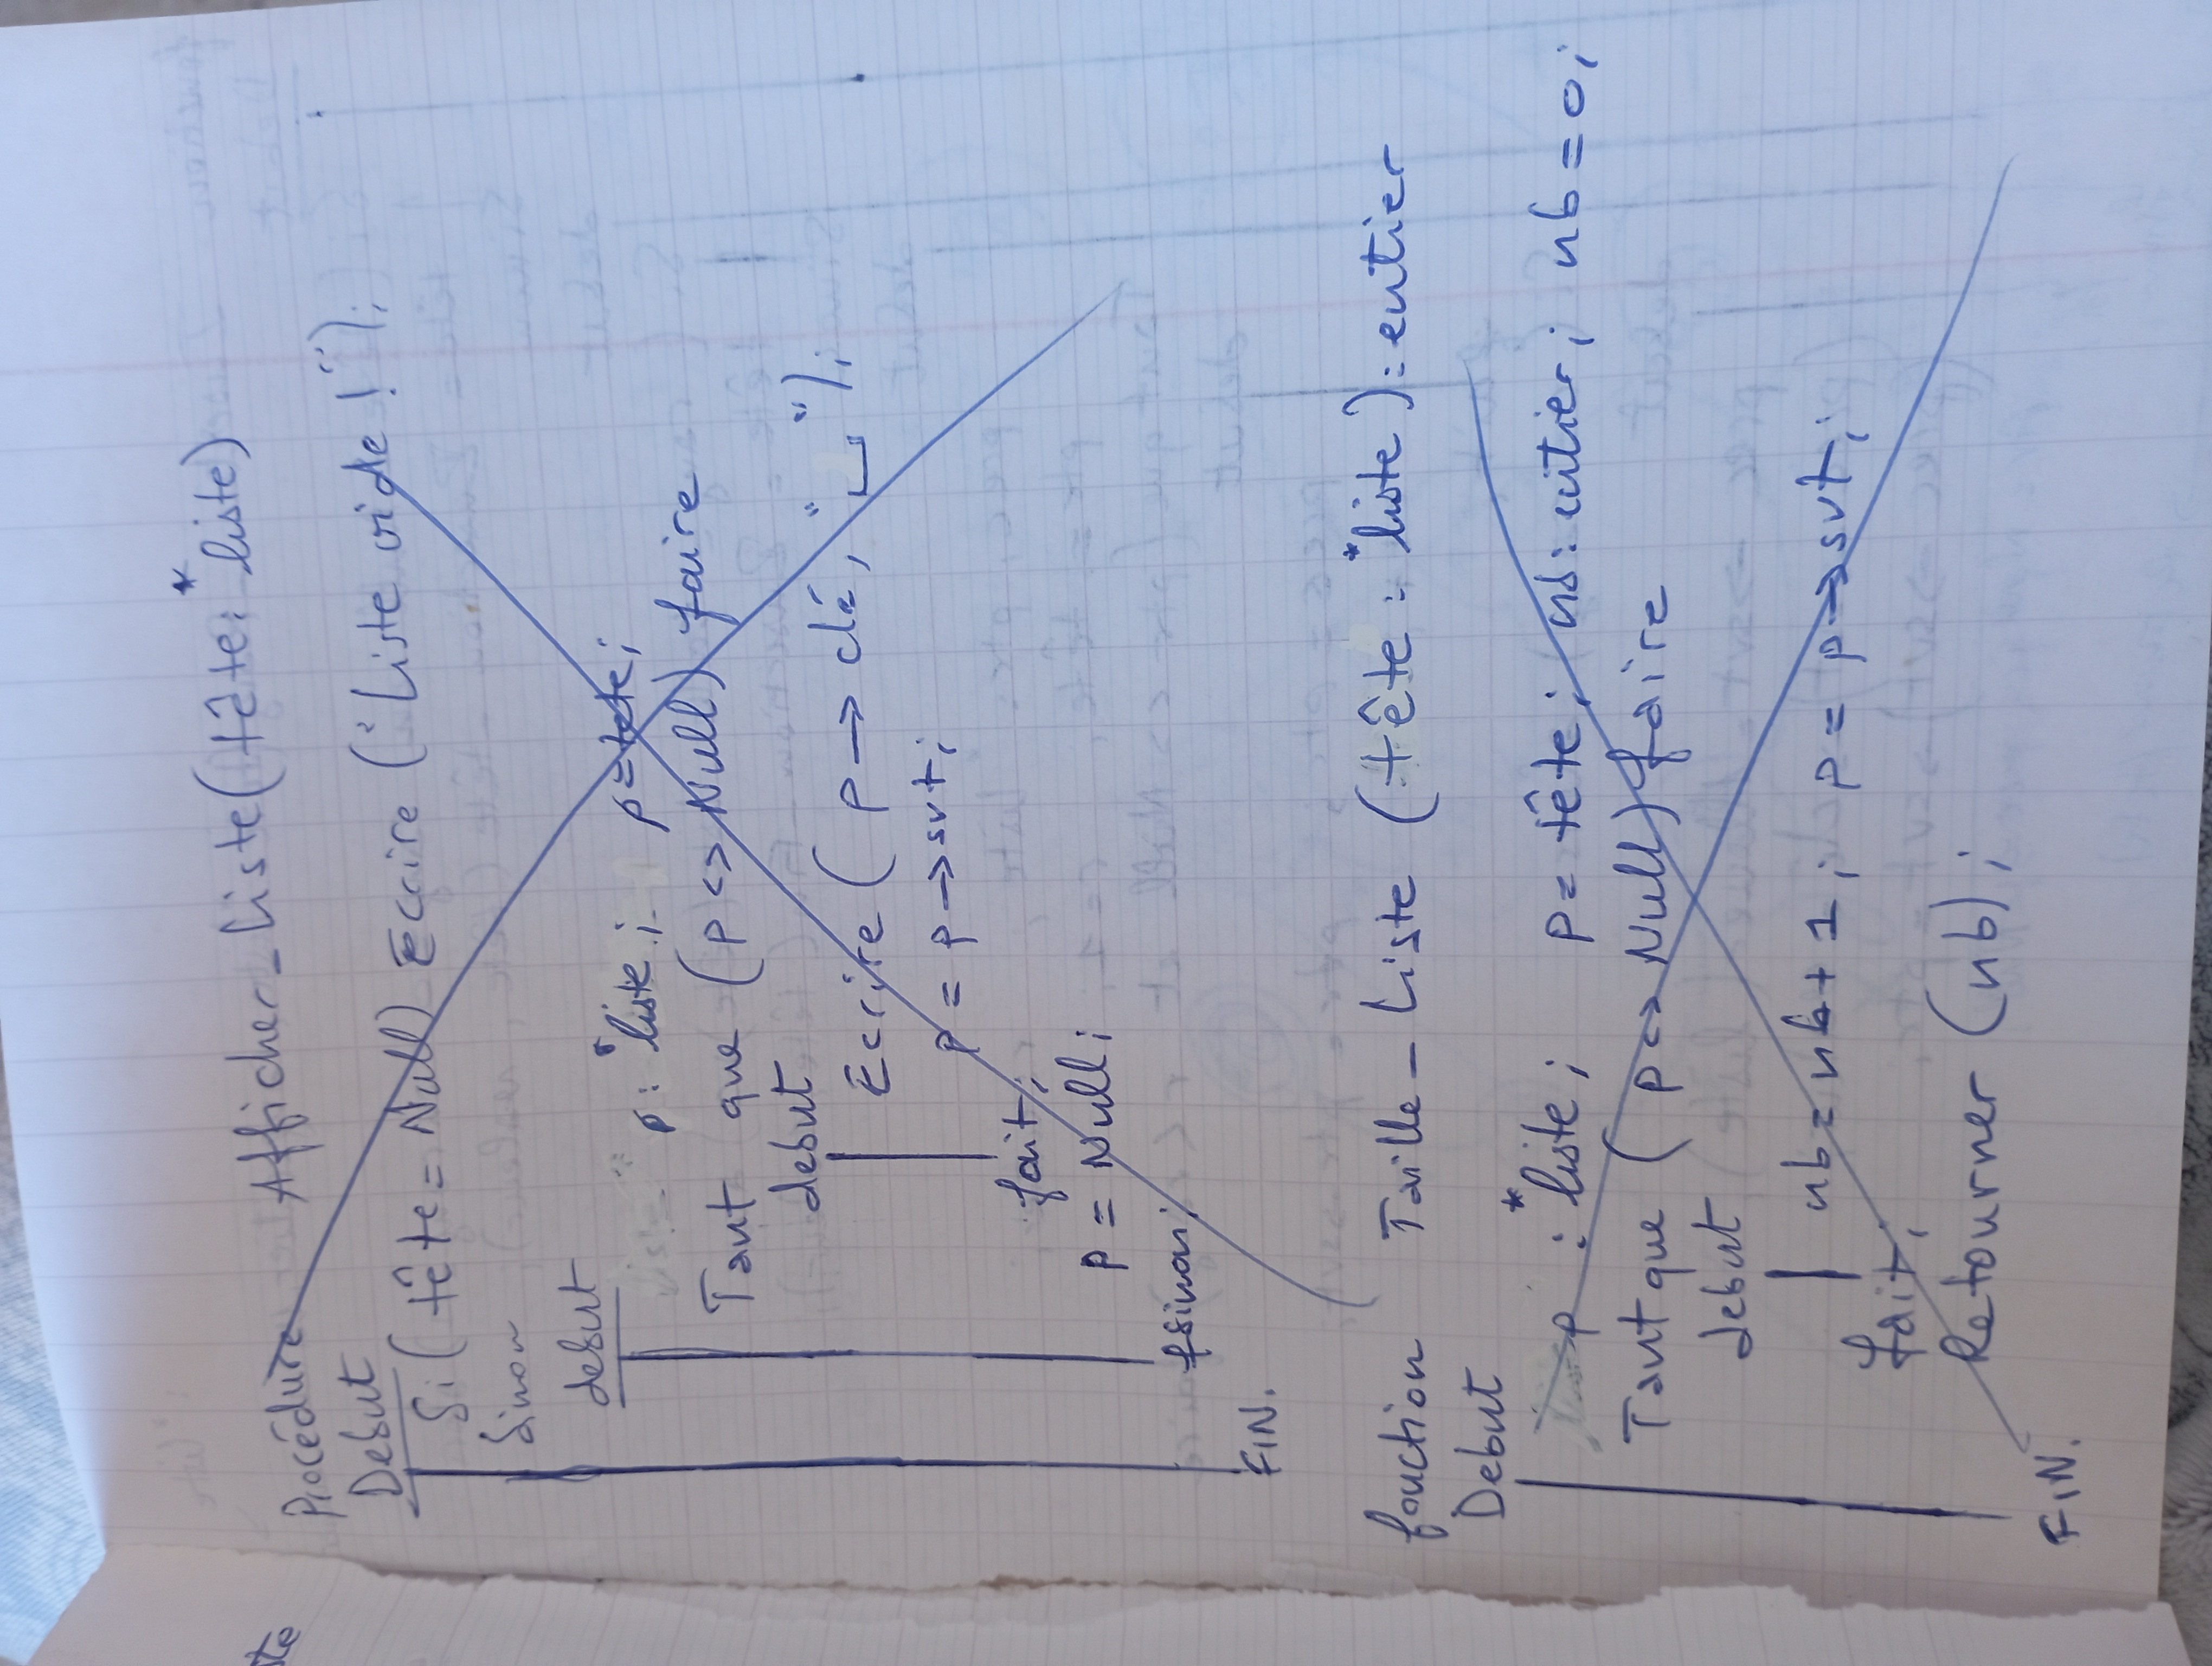 Procédure Afficher_Liste(tête: *liste)
Debut
Si(tête = Null) Ecrire ("Liste vide !");
Sinon
debut
p: *liste; p=tete;
Tant que (p <> Null) faire
debut
Ecrire ( p → clé, "␣");
p = p → svt;
fait;
p = Null;
fsinon;
FIN.
fonction Taille_Liste (tête : *liste): entier
Debut
p : *liste; p= tête; nb: entier; nb = 0;
Tant que ( p <> Null) faire
debut
nb = nb + 1; p = p → svt;
fait;
Retourner (nb);
FIN.